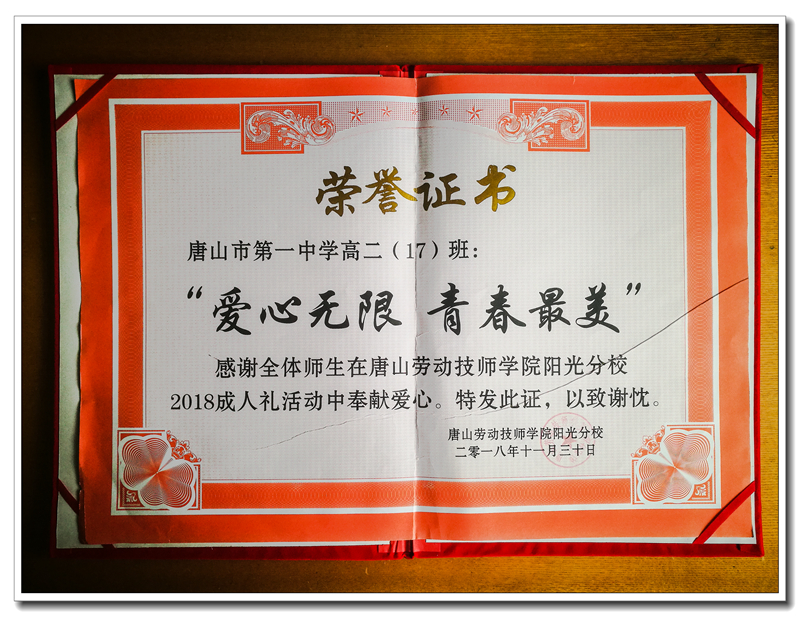 荣誉证书
唐山市第一中学高二（17）班：
“爱心无限 青春最美”
感谢全体师生在唐山劳动技师学院阳光分校
2018成人礼活动中奉献爱心。特发此证，以致谢忱。
唐山劳动技师学院阳光分校
二零一八年十一月三十日